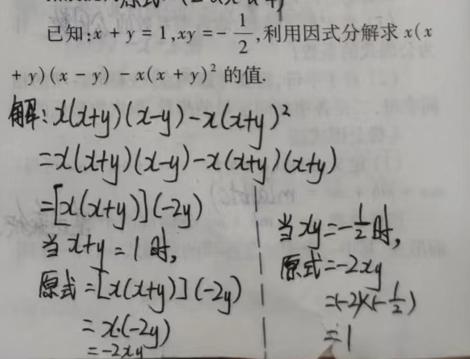 已知:x + y = 1, xy = -1/2, 利用因式分解求 x(x
+ y)(x - y) - x(x + y)² 的值.
解: x(x+y)(x-y)-x(x+y)²
=x(x+y)(x-y)-x(x+y)(x+y)
=[x(x+y)](-2y)
当x+y=1时,
原式=[x(x+y)](-2y)
=x·(-2y)
=-2xy
当xy=-1/2时,
原式=-2xy
=(-2)×(-1/2)
=1